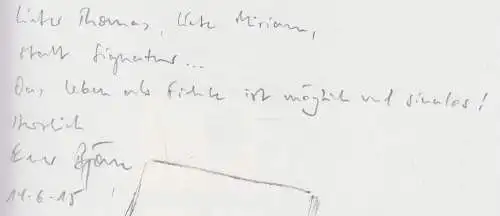 Lieber Thomas, liebe Miriam,
statt Signatur...
Das Leben als Fichte ist möglich und sinnlos!
Herzlich
Euer Björn
14-6-15